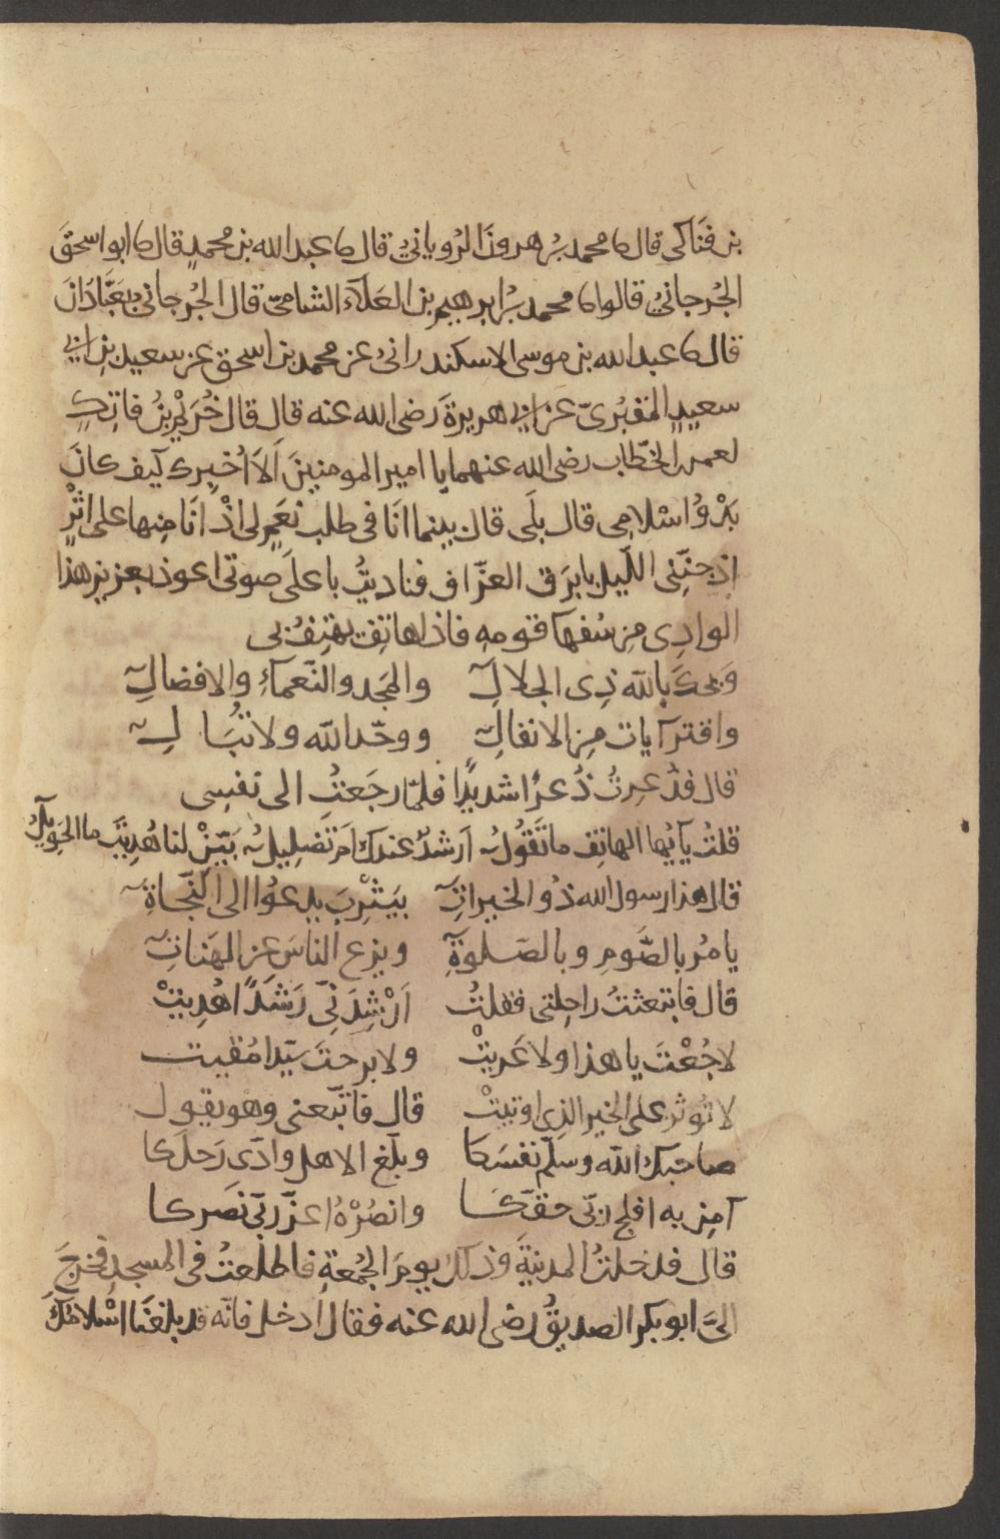 بن فناكى قال نا محمد بن هرون الرويانيُّ قال نا عبد الله بن محمدٍ قال نا ابو اسحقَ
الجُرجانيُّ قالوا نا محمد بن ابرهيم بن العَلَاء الشامىّ قال الجُرجانيُّ بعَبَّادَانَ
قال نا عبد الله بن موسى الاسكندرانىُّ عن محمد بن اسحق عن سعيد بن ابى
سعيدٍ المقبُرىّ عن ابى هريرةَ رضى الله عنه قال قال خُرَيْمُ بنُ فاتِكٍ
لعمر بن الخطّاب رضى الله عنهما يا امير المومنينَ اَلَا اُخْبِرك كيف كانَ
بَدْوُ اسْلامى قال بلَى قال بينما انَا فى طلب نعَمٍ لى اذْ انَا مِنها على اثْرٍ
اذ جنّنى اللّيل بابرَق العزّاف فناديتُ باعلَى صوتى اعوذ بعزيز هذا
الوادِى مِن سُفهآ قومه فاذا هاتِفٌ يهتِفُ بى
وَيحكَ بالله ذِى الجلالِ والمجد والنّعمآءِ والافضالِ
واقترآيات مِن الانفالِ ووحّد الله ولا تُبَالِ
قال فذُعِرتُ ذُعرًا شديدًا فلمّا رجَعتُ الى نفسِى
قلتُ يآيُها الهاتِف ما تَقُولُ اَرشدٌ عندك اَم تَضلِيلُ بَيّنْ لنا هُدِيتَ ما الحَوِيلُ
قال هذا رسول الله ذُو الخيراتِ بيَثْرِبَ يدعُوا الى النّجَاةِ
يامُر بالصّومِ وبالصّلوةِ ويزع الناسَ عن الهَناتِ
قال فابتعثتُ راحِلتى فقلتُ اَرْشِدَنِّى رَشَدًا هُدِيتْ
لا جُعْتَ يا هذا ولا عَرِيتْ ولا برحتَ سيّدا مُقيت
لا تُوثر على الخير الذى اوتيتْ قال فاتّبعنى وهو يقول
صاحبك الله وسلّم نفسَكا وبلّغ الاهل وادّى رَحلَكا
آمِن به افلح ربّى حقّكا وانصُرْهُ اعزّ ربّى نصَركا
قال فدخلتُ المدينةَ وذلك يومَ الجُمعة فاطّلعتُ فى المسجدِ فخرَجَ
الىَّ ابو بكر الصديقُ رضى الله عنه فقال ادخل فانّه قد بلغنَا اسْلامُكَ